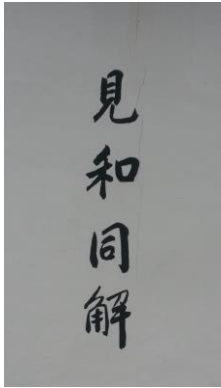 見和同解